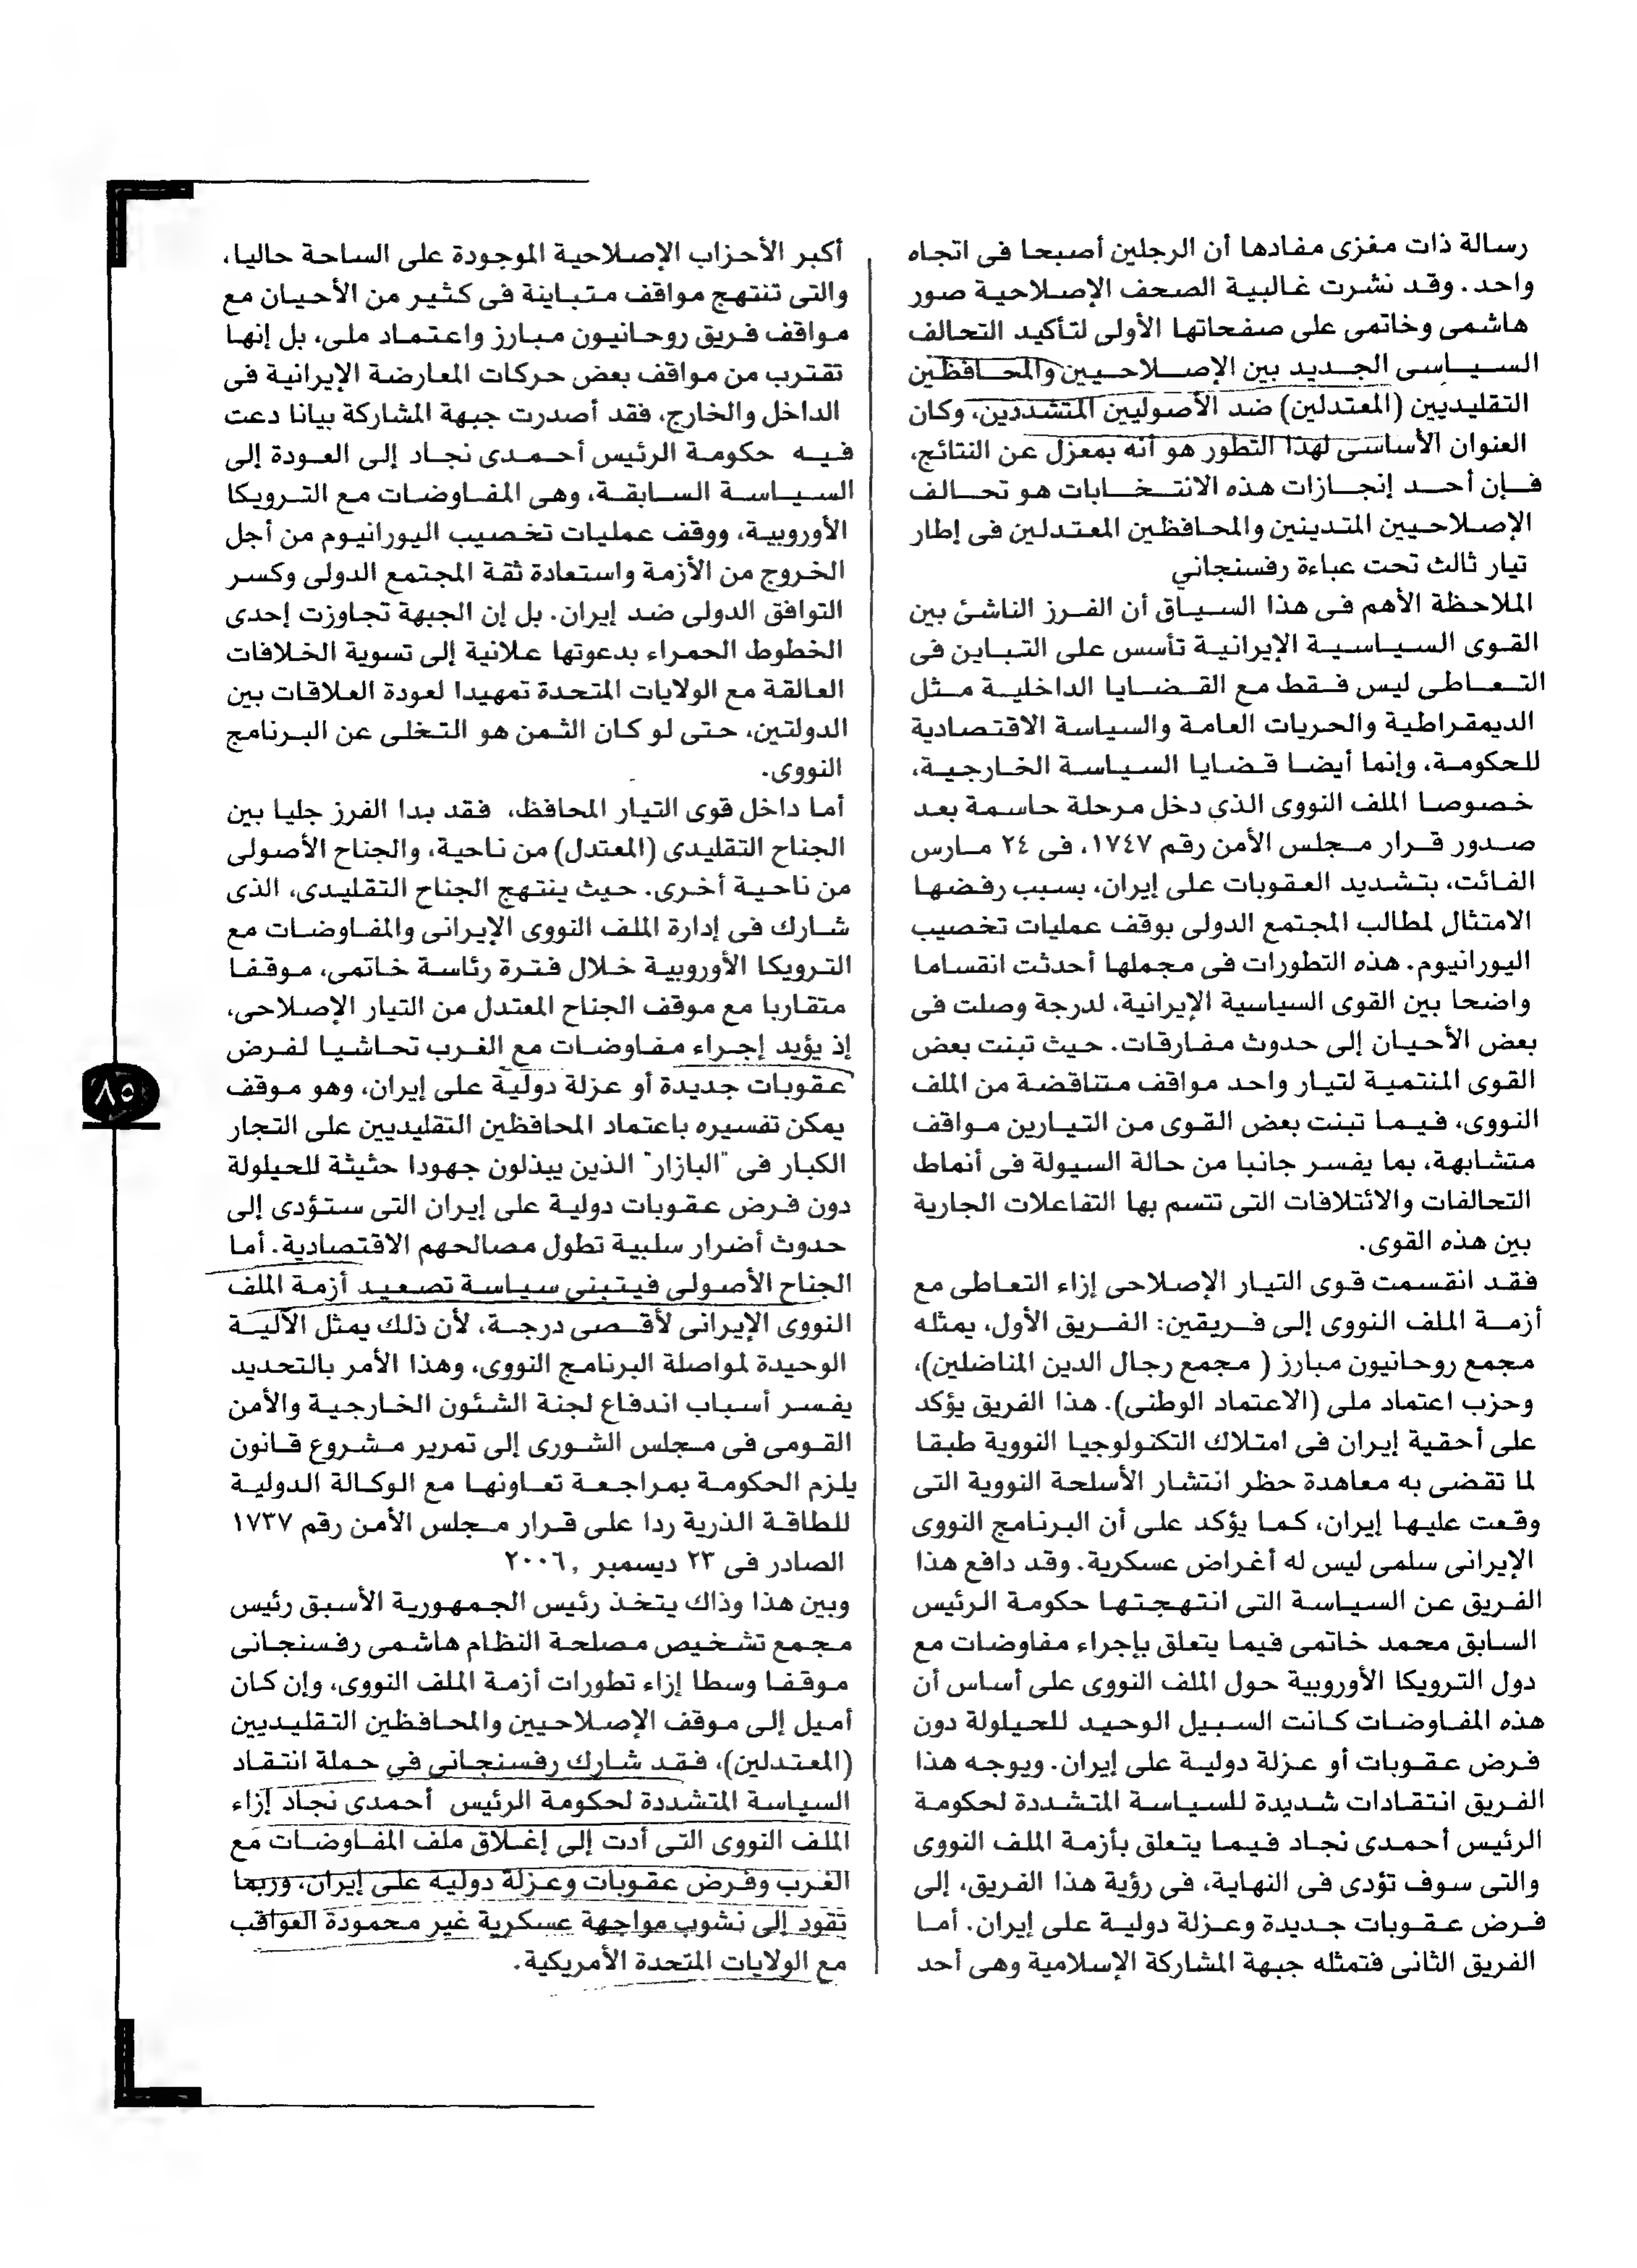 رسالة ذات مغزى مفادها أن الرجلين أصبحا فى اتجاه
واحد. وقد نشرت غالبية الصحف الإصلاحية صور
هاشمى وخاتمى على صفحاتها الأولى لتأكيد التحالف
السياسى الجديد بين الإصلاحيين والمحافظين
التقليديين (المعتدلين) ضد الأصوليين المتشددين، وكان
العنوان الأساسى لهذا التطور هو أنه بمعزل عن النتائج،
فإن أحد إنجازات هذه الانتخابات هو تحالف
الإصلاحيين المتدينين والمحافظين المعتدلين فى إطار
تيار ثالث تحت عباءة رفسنجاني
الملاحظة الأهم فى هذا السياق أن الفرز الناشئ بين
القوى السياسية الإيرانية تأسس على التباين فى
التعاطى ليس فقط مع القضايا الداخلية مثل
الديمقراطية والحريات العامة والسياسة الاقتصادية
للحكومة، وإنما أيضا قضايا السياسة الخارجية،
خصوصا الملف النووى الذى دخل مرحلة حاسمة بعد
صدور قرار مجلس الأمن رقم ١٧٤٧، فى ٢٤ مارس
الفائت، بتشديد العقوبات على إيران، بسبب رفضها
الامتثال لمطالب المجتمع الدولى بوقف عمليات تخصيب
اليورانيوم. هذه التطورات فى مجملها أحدثت انقساما
واضحا بين القوى السياسية الإيرانية، لدرجة وصلت فى
بعض الأحيان إلى حدوث مفارقات. حيث تبنت بعض
القوى المنتمية لتيار واحد مواقف متناقضة من الملف
النووى، فيما تبنت بعض القوى من التيارين مواقف
متشابهة، بما يفسر جانبا من حالة السيولة فى أنماط
التحالفات والائتلافات التى تتسم بها التفاعلات الجارية
بين هذه القوى.
فقد انقسمت قوى التيار الإصلاحى إزاء التعاطى مع
أزمة الملف النووى إلى فريقين: الفريق الأول، يمثله
مجمع روحانيون مبارز ( مجمع رجال الدين المناضلين)،
وحزب اعتماد ملى (الاعتماد الوطنى). هذا الفريق يؤكد
على أحقية إيران فى امتلاك التكنولوجيا النووية طبقا
لما تقضى به معاهدة حظر انتشار الأسلحة النووية التى
وقعت عليها إيران، كما يؤكد على أن البرنامج النووى
الإيرانى سلمى ليس له أغراض عسكرية. وقد دافع هذا
الفريق عن السياسة التى انتهجتها حكومة الرئيس
السابق محمد خاتمى فيما يتعلق بإجراء مفاوضات مع
دول الترويكا الأوروبية حول الملف النووى على أساس أن
هذه المفاوضات كانت السبيل الوحيد للحيلولة دون
فرض عقوبات أو عزلة دولية على إيران. ويوجه هذا
الفريق انتقادات شديدة للسياسة المتشددة لحكومة
الرئيس أحمدى نجاد فيما يتعلق بأزمة الملف النووى
والتى سوف تؤدى فى النهاية، فى رؤية هذا الفريق، إلى
فرض عقوبات جديدة وعزلة دولية على إيران. أما
الفريق الثانى فتمثله جبهة المشاركة الإسلامية وهى أحد
أكبر الأحزاب الإصلاحية الموجودة على الساحة حاليا،
والتى تنتهج مواقف متباينة فى كثير من الأحيان مع
مواقف فريق روحانيون مبارز واعتماد ملى، بل إنها
تقترب من مواقف بعض حركات المعارضة الإيرانية فى
الداخل والخارج، فقد أصدرت جبهة المشاركة بيانا دعت
فيه حكومة الرئيس أحمدى نجاد إلى العودة إلى
السياسة السابقة، وهى المفاوضات مع الترويكا
الأوروبية، ووقف عمليات تخصيب اليورانيوم من أجل
الخروج من الأزمة واستعادة ثقة المجتمع الدولى وكسر
التوافق الدولى ضد إيران. بل إن الجبهة تجاوزت إحدى
الخطوط الحمراء بدعوتها علانية إلى تسوية الخلافات
العالقة مع الولايات المتحدة تمهيدا لعودة العلاقات بين
الدولتين، حتى لو كان الثمن هو التخلى عن البرنامج
النووى.
أما داخل قوى التيار المحافظ، فقد بدا الفرز جليا بين
الجناح التقليدى (المعتدل) من ناحية، والجناح الأصولى
من ناحية أخرى. حيث ينتهج الجناح التقليدى، الذى
شارك فى إدارة الملف النووى الإيرانى والمفاوضات مع
الترويكا الأوروبية خلال فترة رئاسة خاتمى، موقفا
متقاربا مع موقف الجناح المعتدل من التيار الإصلاحى،
إذ يؤيد إجراء مفاوضات مع الغرب تحاشيا لفرض
عقوبات جديدة أو عزلة دولية على إيران، وهو موقف
يمكن تفسيره باعتماد المحافظين التقليديين على التجار
الكبار فى "البازار" الذين يبذلون جهودا حثيثة للحيلولة
دون فرض عقوبات دولية على إيران التى ستؤدى إلى
حدوث أضرار سلبية تطول مصالحهم الاقتصادية. أما
الجناح الأصولى فيتبنى سياسة تصعيد أزمة الملف
النووى الإيرانى لأقصى درجة، لأن ذلك يمثل الآلية
الوحيدة لمواصلة البرنامج النووى، وهذا الأمر بالتحديد
يفسر أسباب اندفاع لجنة الشئون الخارجية والأمن
القومى فى مجلس الشورى إلى تمرير مشروع قانون
يلزم الحكومة بمراجعة تعاونها مع الوكالة الدولية
للطاقة الذرية ردا على قرار مجلس الأمن رقم ١٧٣٧
الصادر فى ٢٣ ديسمبر ,٢٠٠٦
وبين هذا وذاك يتخذ رئيس الجمهورية الأسبق رئيس
مجمع تشخيص مصلحة النظام هاشمى رفسنجانى
موقفا وسطا إزاء تطورات أزمة الملف النووى، وإن كان
أميل إلى موقف الإصلاحيين والمحافظين التقليديين
(المعتدلين)، فقد شارك رفسنجانى فى حملة انتقاد
السياسة المتشددة لحكومة الرئيس أحمدى نجاد إزاء
الملف النووى التى أدت إلى إغلاق ملف المفاوضات مع
الغرب وفرض عقوبات وعزلة دولية على إيران، وربما
تقود إلى نشوب مواجهة عسكرية غير محمودة العواقب
مع الولايات المتحدة الأمريكية.
٨٥